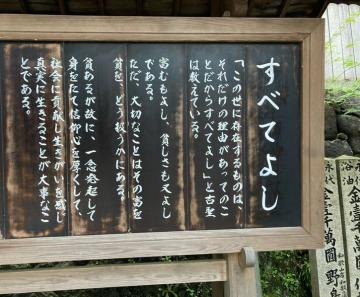 すべてよし
「この世に存在するものは、
それだけの理由があってのこ
とだからすべてよし」と古聖
は教えている。
富むもよし、貧しさも又よし
である。
ただ、大切なことはその富を
貧を、どう扱うかにある。
貧あるが故に、一念発起して
身をたて信仰心を厚くして、
社会に貢献し生きがいを感じ
真実に生きることが大事なこ
とである。